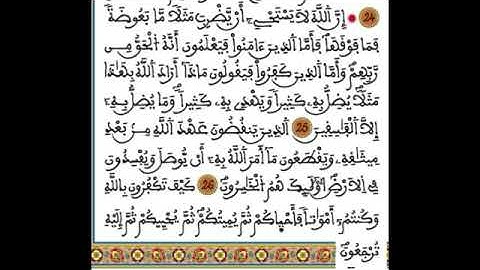 24 إِنَّ اَللَّهَ لَا يَسْتَحْيِۦ أَنْ يَّضْرِبَ مَثَلاً مَّا بَعُوضَةً
فَمَا فَوْقَهَا فَأَمَّا اَلذِينَ ءَامَنُواْ فَيَعْلَمُونَ أَنَّهُ اُلْحَقُّ مِن
رَّبِّهِمْ وَأَمَّا اَلذِينَ كَفَرُواْ فَيَقُولُونَ مَاذَا أَرَادَ اَللَّهُ بِهَٰذَا
مَثَلاً يُضِلُّ بِهِۦ كَثِيراً وَيَهْدِي بِهِۦ كَثِيراً وَمَا يُضِلُّ بِهِۦ
إِلَّا اَلْفَٰسِقِينَ 25 اَلذِينَ يَنقُضُونَ عَهْدَ اَللَّهِ مِنۢ بَعْدِ
مِيثَٰقِهِۦ وَيَقْطَعُونَ مَا أَمَرَ اَللَّهُ بِهِۦ أَنْ يُّوصَلَ وَيُفْسِدُونَ
فِي اِلْأَرْضِ أُوْلَٰئِكَ هُمُ اُلْخَٰسِرُونَ 26 كَيْفَ تَكْفُرُونَ بِاللَّهِ
وَكُنتُمْ أَمْوَٰتاً فَأَحْيَٰكُمْ ثُمَّ يُمِيتُكُمْ ثُمَّ يُحْيِيكُمْ ثُمَّ إِلَيْهِ
تُرْجَعُونَ